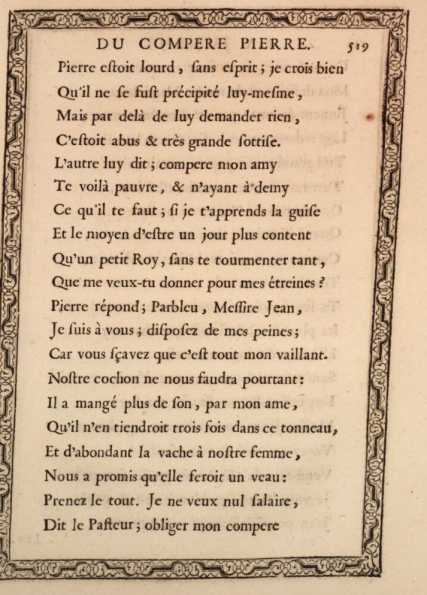 DU COMPERE PIERRE. 519
Pierre eſtoit lourd, ſans eſprit; je crois bien
Qu'il ne ſe fuſt précipité luy-meſme,
Mais par delà de luy demander rien,
C'eſtoit abus & très grande ſottiſe.
L'autre luy dit; compere mon amy
Te voilà pauvre, & n'ayant à demy
Ce qu'il te faut; ſi je t'apprends la guiſe
Et le moyen d'eſtre un jour plus content
Qu'un petit Roy, ſans te tourmenter tant,
Que me veux-tu donner pour mes étreines?
Pierre répond; Parbleu, Meſſire Jean,
Je ſuis à vous; diſpoſez de mes peines;
Car vous ſçavez que c'eſt tout mon vaillant.
Noſtre cochon ne nous faudra pourtant:
Il a mangé plus de ſon, par mon ame,
Qu'il n'en tiendroit trois fois dans ce tonneau,
Et d'abondant la vache à noſtre femme,
Nous a promis qu'elle feroit un veau:
Prenez le tout. Je ne veux nul ſalaire,
Dit le Paſteur; obliger mon compere